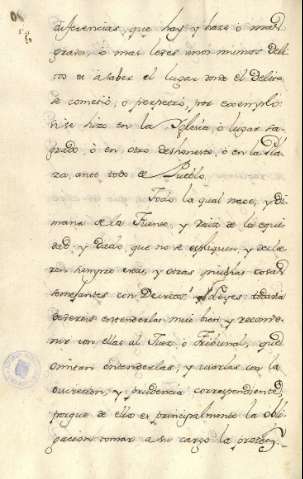 diferencias, que hay y hace ó mas
graves, ó mas leves unos mismos deli-
tos es á saber el lugar donde el Delito
se cometió, o perpetró, por exemplo:
si se hizo en la Iglesia ó lugar Sa-
grado, ó en otro deshonesto, ó en la Pla-
za, ante todo el Pueblo.
Todo lo qual nace, y di-
mana de la Fuente, y Raiz de la equi-
dad, y dado que no se expliquen, y decla-
ren siempre estas, y otras muchas cosas
semejantes con Decretos Leyes todavia
debereis entenderlas mui bien, y recombe-
nir con ellas al Juez, ó Tribunal, que
omitan entenderlas, y usarlas con la
discrecion, y prudencia correspondiente,
porque de ello es principalmente la obli-
gacion tomar a su cargo la protec-